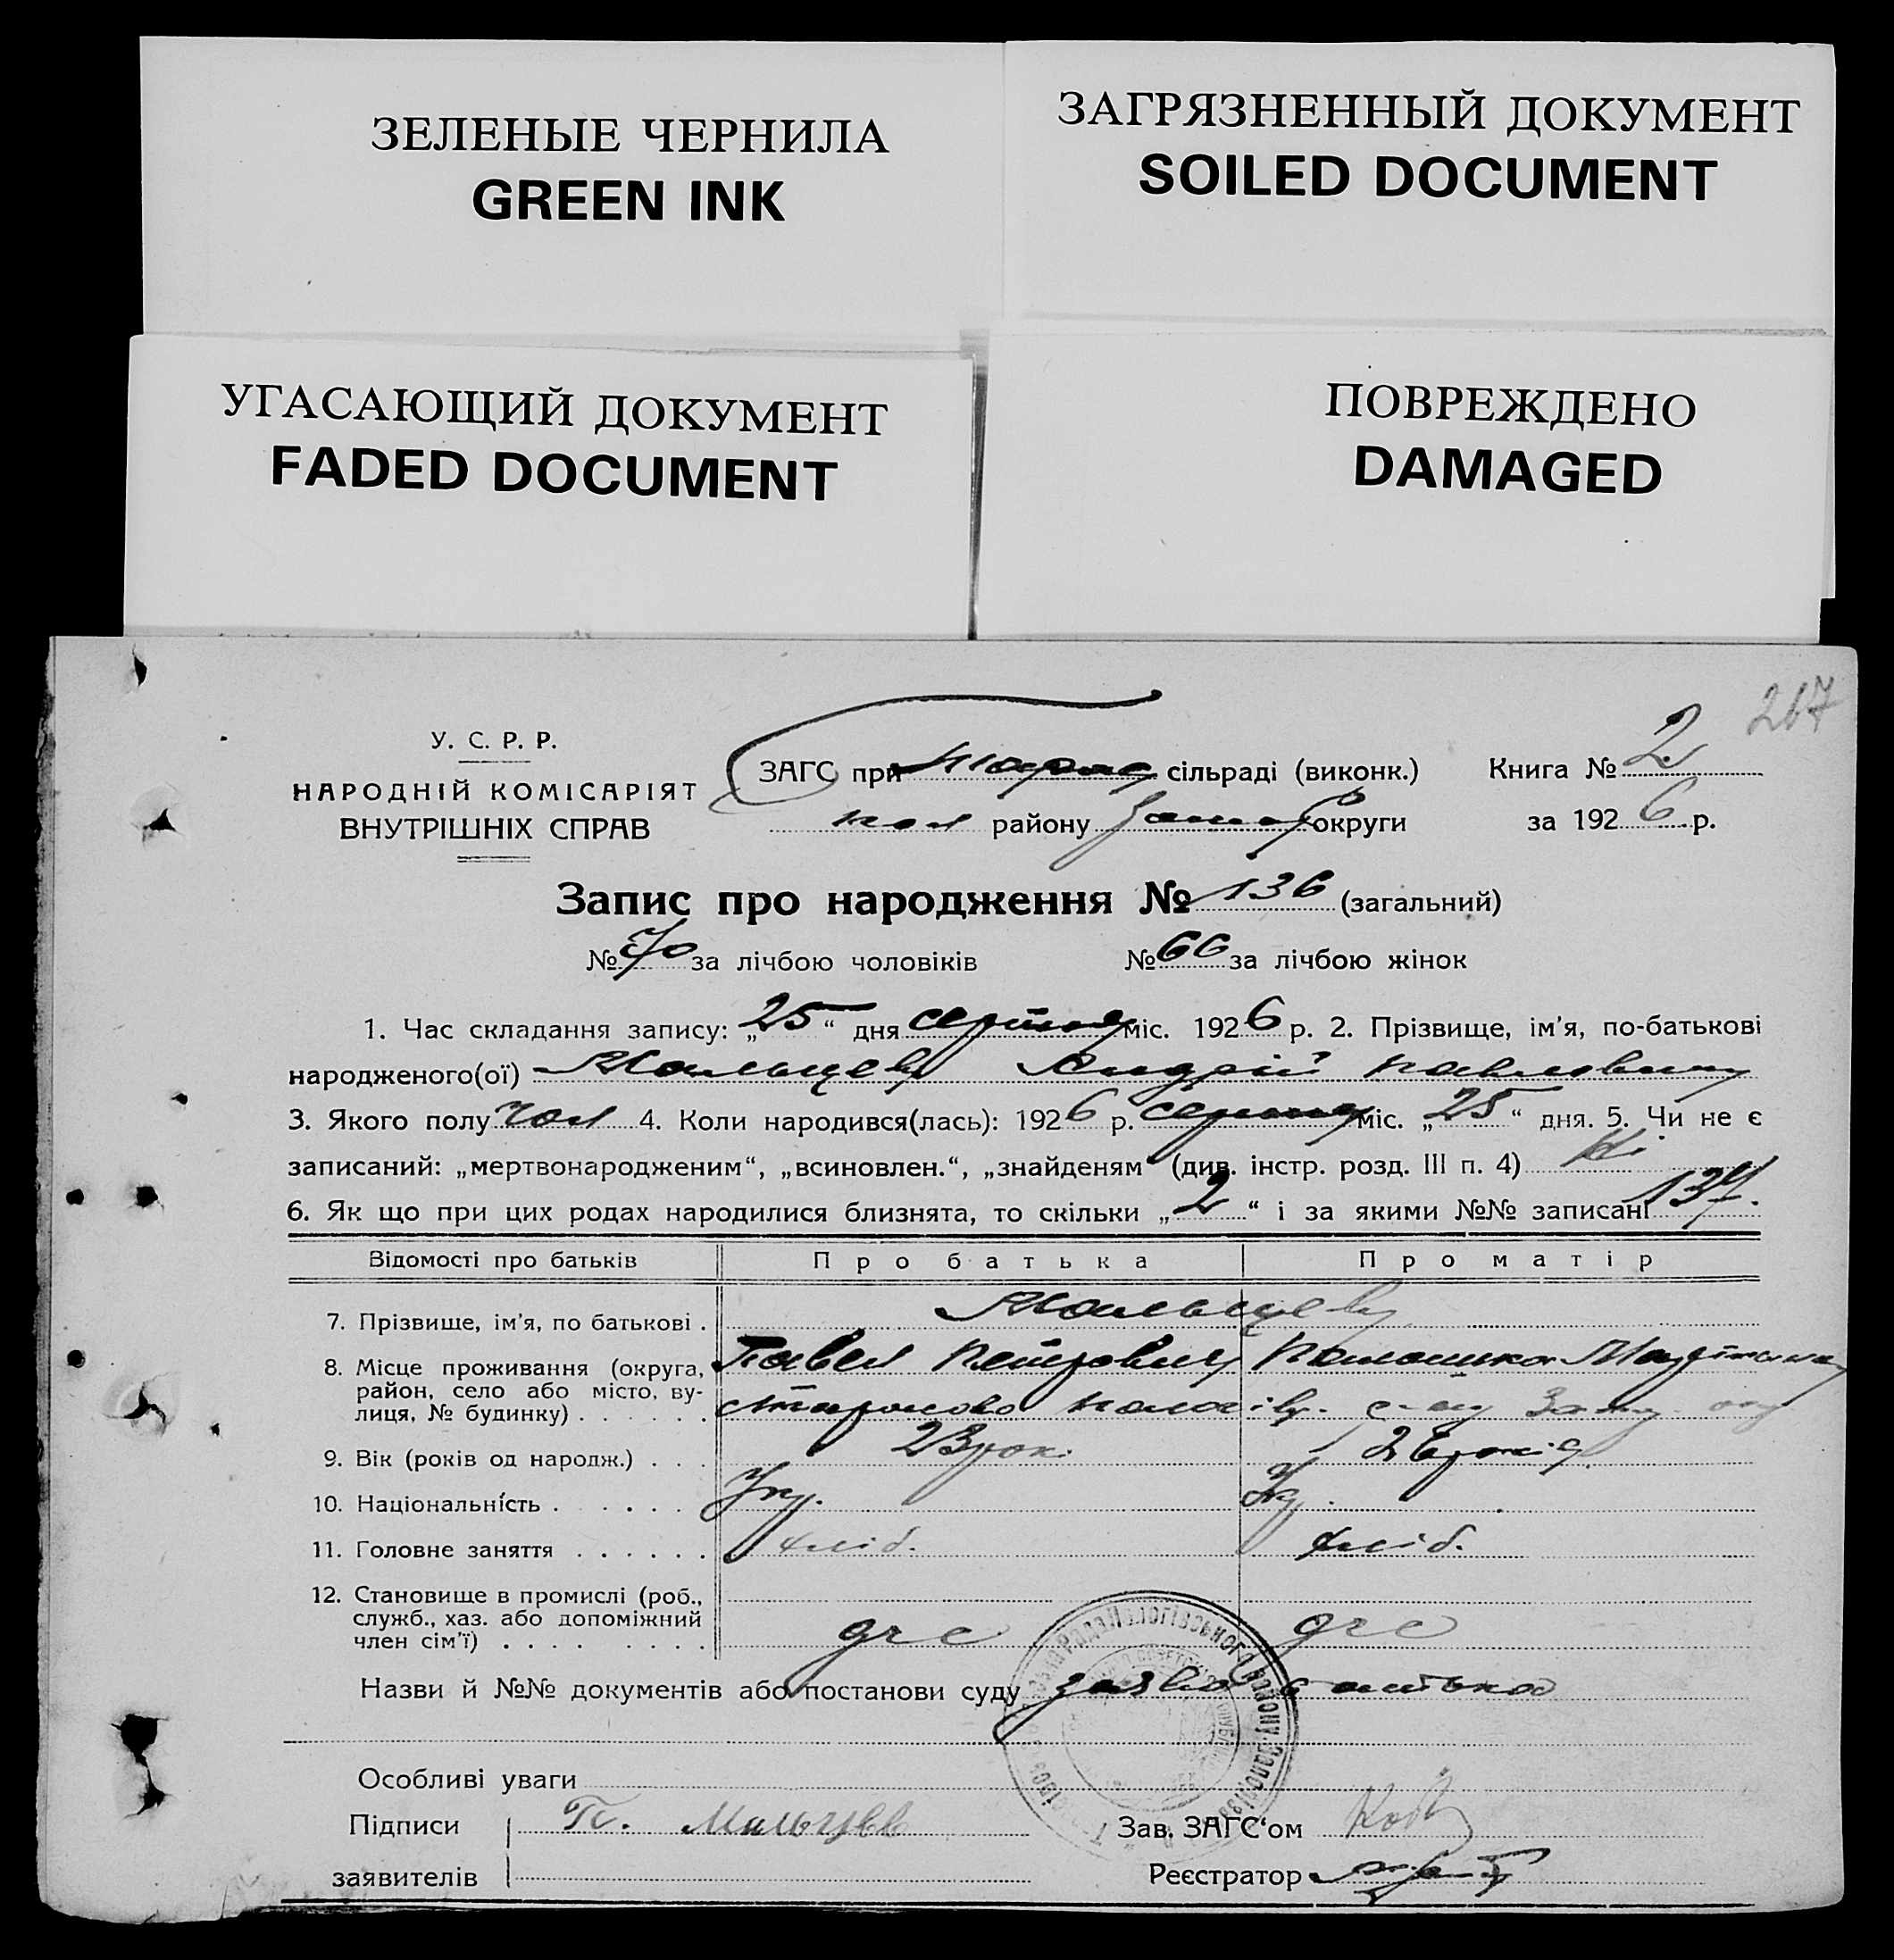 ЗЕЛЕНЫЕ ЧЕРНИЛА
GREEN INK
ЗАГРЯЗНЕННЫЙ ДОКУМЕНТ
SOILED DOCUMENT
УГАСАЮЩИЙ ДОКУМЕНТ
FADED DOCUMENT
ПОВРЕЖДЕНО
DAMAGED
267
У. С. Р. Р.
НАРОДНІЙ КОМІСАРІЯТ
ВНУТРІШНІХ СПРАВ
ЗАГС при сільраді (виконк.)
пол району Запор округи
Книга № 2
за 1926 р.
Запис про народження № 136 (загальний)
№ 70 за лічбою чоловіків № 66 за лічбою жінок
1. Час складання запису: „25“ дня серпня міс. 1926 р. 2. Прізвище, ім'я, по-батькові
народженого(ої) Мальцев Андрій Павлович
3. Якого полу чол 4. Коли народився(лась): 1926 р. серпня міс. „25“ дня. 5. Чи не є
записаний: „мертвонародженим“, „всиновлен.“, „знайденям“ (див. інстр. розд. III п. 4) Ні
6. Як що при цих родах народилися близнята, то скільки „2“ і за якими №№ записані 137.
Відомості про батьків Про батька Про матір
7. Прізвище, ім'я, по батькові . Мальцев
Павел Петрович
8. Місце проживання (округа,
район, село або місто, ву-
лиця, № будинку) . . . . . .
9. Вік (років од народж.) . . . 23 рок.
10. Національність . . . . . . Укр. Укр.
11. Головне заняття . . . . . . хліб. хліб.
12. Становище в промислі (роб.,
служб., хаз. або допоміжний
член сім'ї) . . . . . . . . дчс дчс
Назви й №№ документів або постанови суду заява батька
Особливі уваги
Підписи П. Мальцев
заявителів
Зав. ЗАГС'ом
Реєстратор